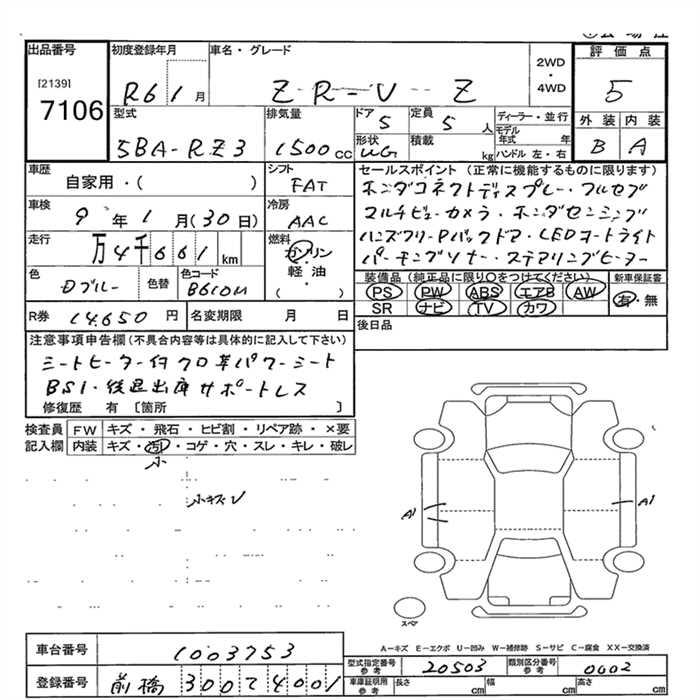 出品番号
[2139]
7106
初度登録年月
R6 1月
車名・グレード
ZR-V Z
2WD
・
4WD
評価点
5
外装 内装
B A
型式
5BA-RZ3
排気量
1500cc
ドア
5
定員
5人
形状
WG
積載
kg
ディーラー・並行
モデル年式 年
ハンドル 左・右
車歴
自家用・( )
シフト
FAT
車検
9年1月(30日)
冷房
AAC
走行
万4千661km
燃料
ガソリン
軽油
( )
色
Dブルー
色替
色コード
B610M
セールスポイント(正常に機能するものに限ります)
ホンダコネクトディスプレー・フルセグ
マルチビューカメラ・ホンダセンシング
ハンズフリーPバックドア・LEDオートライト
パーキングソナー・ステアリングヒーター
装備品(純正品に限り○をつけてください)
PS PW ABS エアB AW
SR ナビ TV カワ
新車保証書
有・無
後日品
R券 14,650円
名変期限 月 日
注意事項申告欄(不具合内容等は具体的に記入して下さい)
シートヒーター付クロ革パワーシート
BSI・後退出庫サポートレス
修復歴 有[箇所 ]
検査員記入欄
FW キズ・飛石・ヒビ割・リペア跡・×要
内装 キズ・汚・コゲ・穴・スレ・キレ・破レ
小
小キズU
A1
A1
スペア
A-キズ E-エクボ U-凹み W-補修跡 S-サビ C-腐食 XX-交換済
車台番号 1003753
登録番号 前橋 300 て 4001
型式指定番号 参考 20503
類別区分番号 参考 0002
車庫証明用 参考
長さ cm
幅 cm
高さ cm